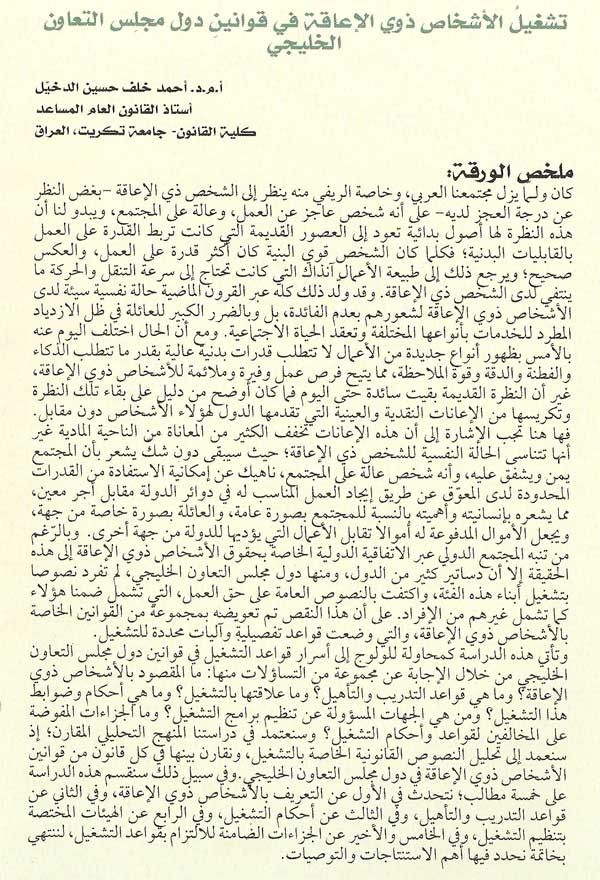 تشغيلُ الأشخاص ذوي الإعاقة في قوانينِ دول مجلِس التعاون
الخليجي
أ.م.د. أحمد خلف حسين الدخيّل
أستاذ القانون العام المساعد
كلية القانون- جامعة تكريت، العراق
ملخص الورقة:
كان ولما يزل مجتمعنا العربي، وخاصة الريفي منه ينظر إلى الشخص ذي الإعاقة –بغض النظر
عن درجة العجز لديه– على أنه شخص عاجز عن العمل، وعالة على المجتمع، ويبدو لنا أن
هذه النظرة لها أصول بدائية تعود إلى العصور القديمة التي كانت تربط القدرة على العمل
بالقابليات البدنية؛ فكلما كان الشخص قوي البنية كان أكثر قدرة على العمل، والعكس
صحيح؛ ويرجع ذلك إلى طبيعة الأعمال آنذاك التي كانت تحتاج إلى سرعة التنقل والحركة ما
ينتفي لدى الشخص ذي الإعاقة. وقد ولد ذلك كله عبر القرون الماضية حالة نفسية سيئة لدى
الأشخاص ذوي الإعاقة لشعورهم بعدم الفائدة، بل وبالضرر الكبير للعائلة في ظل الازدياد
المطرد للخدمات بأنواعها المختلفة وتعقد الحياة الاجتماعية. ومع أن الحال اختلف اليوم عنه
بالأمس بظهور أنواع جديدة من الأعمال لا تتطلب قدرات بدنية عالية بقدر ما تتطلب الذكاء
والفطنة والدقة وقوة الملاحظة، مما يتيح فرص عمل وفيرة وملائمة للأشخاص ذوي الإعاقة،
غير أن النظرة القديمة بقيت سائدة حتى اليوم فما كان أوضح من دليل على بقاء تلك النظرة
وتكريسها من الإعانات النقدية والعينية التي تقدمها الدول لهؤلاء الأشخاص دون مقابل.
فها هنا تجب الإشارة إلى أن هذه الإعانات تخفف الكثير من المعاناة من الناحية المادية غير
أنها تتناسى الحالة النفسية للشخص ذي الإعاقة؛ حيث سيبقى دون شك يشعر بأن المجتمع
يمن ويشفق عليه، وأنه شخص عالة على المجتمع، ناهيك عن إمكانية الاستفادة من القدرات
المحدودة لدى المعوّق عن طريق إيجاد العمل المناسب له في دوائر الدولة مقابل أجر معين،
مما يشعره بإنسانيته وأهميته بالنسبة للمجتمع بصورة عامة، والعائلة بصورة خاصة من جهة،
ويجعل الأموال المدفوعة له أموالا تقابل الأعمال التي يؤديها للدولة من جهة أخرى. وبالرّغم
من تنبه المجتمع الدولي عبر الاتفاقية الدولية الخاصة بحقوق الأشخاص ذوي الإعاقة إلى هذه
الحقيقة إلا أن دساتير كثير من الدول، ومنها دول مجلس التعاون الخليجي، لم تفرد نصوصا
بتشغيل أبناء هذه الفئة، واكتفت بالنصوص العامة على حق العمل، التي تشمل ضمنا هؤلاء
كما تشمل غيرهم من الإفراد. على أن هذا النقص تم تعويضه بمجموعة من القوانين الخاصة
بالأشخاص ذوي الإعاقة، والتي وضعت قواعد تفصيلية وآليات محددة للتشغيل.
وتأتي هذه الدراسة كمحاولة للولوج إلى أسرار قواعد التشغيل في قوانين دول مجلس التعاون
الخليجي من خلال الإجابة عن مجموعة من التساؤلات منها: ما المقصود بالأشخاص ذوي
الإعاقة؟ وما هي قواعد التدريب والتأهيل؟ وما علاقتها بالتشغيل؟ وما هي أحكام وضوابط
هذا التشغيل؟ ومن هي الجهات المسؤولة عن تنظيم برامج التشغيل؟ وما الجزاءات المفوضة
على المخالفين لقواعد وأحكام التشغيل؟ وسنعتمد في دراستنا المنهج التحليلي المقارن؛ إذ
سنعمد إلى تحليل النصوص القانونية الخاصة بالتشغيل، ونقارن بينها في كل قانون من قوانين
الأشخاص ذوي الإعاقة في دول مجلس التعاون الخليجي.وفي سبيل ذلك سنقسم هذه الدراسة
على خمسة مطالب؛ نتحدث في الأول عن التعريف بالأشخاص ذوي الإعاقة، وفي الثاني عن
قواعد التدريب والتأهيل، وفي الثالث عن أحكام التشغيل، وفي الرابع عن الهيئات المختصة
بتنظيم التشغيل، وفي الخامس والأخير عن الجزاءات الضامنة للالتزام بقواعد التشغيل، لننتهي
بخاتمة نحدد فيها أهم الاستنتاجات والتوصيات.